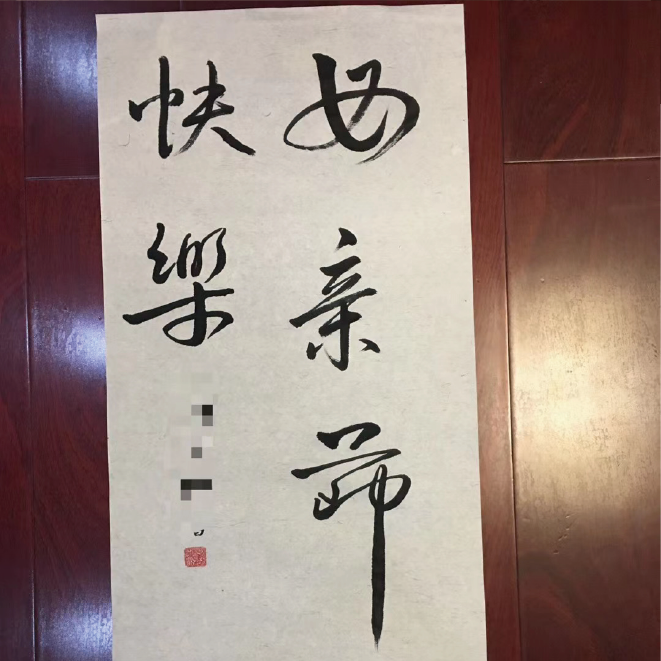 母亲節
快樂